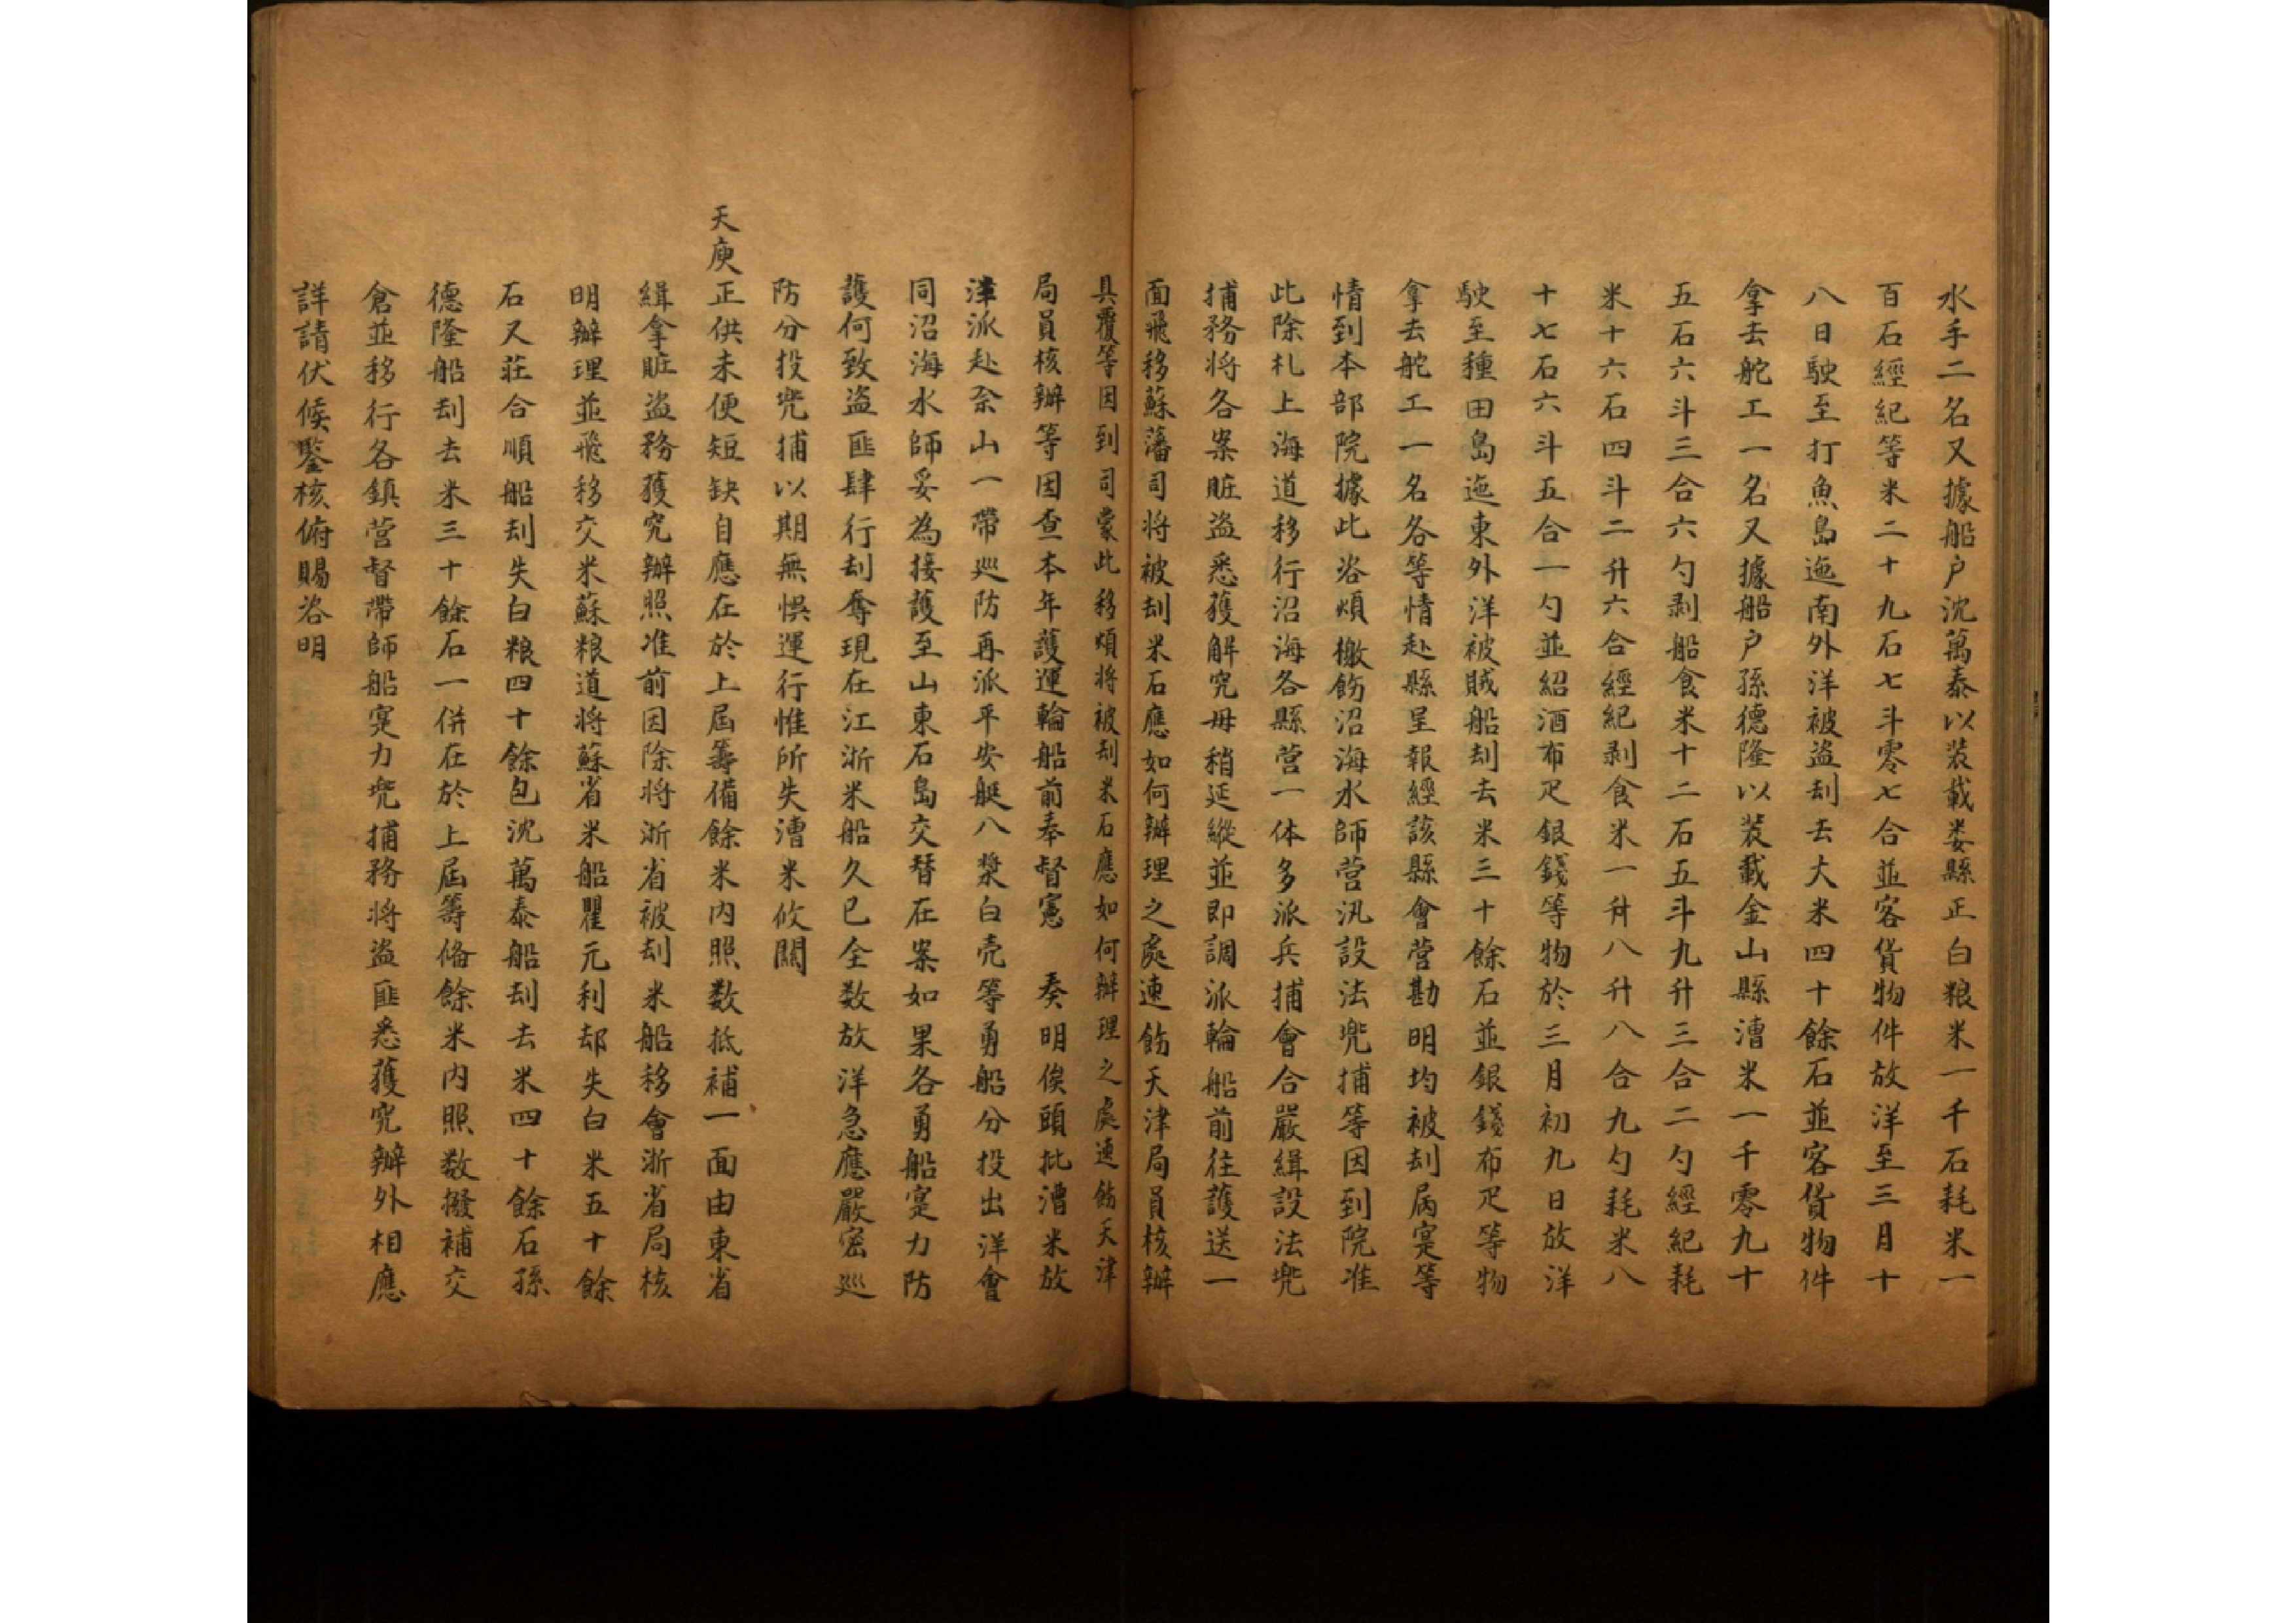 水手二名又據船户沈萬泰以装載娄縣正白粮米一千石耗米一
百石經紀等米二十九石七斗零七合並客貨物件放洋至三月十
八日駛至打魚島迤南外洋被盜刦去大米四十餘石並客貨物件
拿去舵工一名又據船户孫德隆以装載金山縣漕米一千零九十
五石六斗三合六勺剥船食米十二石五斗九升三合二勺經紀耗
米十六石四斗二升六合經紀剥食米一升八升八合九勺耗米八
十七石六斗五合一勺並紹酒布疋銀錢等物於三月初九日放洋
駛至種田島迤東外洋被賊船刦去米三十餘石並銀錢布疋等物
拿去舵工一名各等情赴縣呈報經該縣會营勘明均被刦属寔等
情到本部院據此咨煩檄飭沿海水師营汛設法兜捕等因到院准
此除札上海道移行沿海各縣营一体多派兵捕會合嚴緝設法兜
捕務将各案賍盗悉獲解究毋稍延縱並即調派輪船前往護送一
面飛移蘇藩司将被刦米石應如何辦理之處速飭天津局員核辦
具覆等因到司蒙此移煩将被刦米石應如何辦理之處速飭天津
局員核辦等因查本年護運輪船前奉督憲 奏明俟頭批漕米放
洋派赴佘山一帶巡防再派平安艇八槳白壳等勇船分投出洋會
同沿海水師妥為接護至山東石島交替在案如果各勇船寔力防
護何致盗匪肆行刦奪現在江浙米船久已全数放洋急應嚴密巡
防分投兜捕以期無悞運行惟所失漕米攸關
天庾正供未便短缺自應在於上屆籌備餘米内照数抵補一面由東省
緝拿賍盗務獲究辦照准前因除将浙省被刦米船移會浙省局核
明辦理並飛移交米蘇粮道将蘇省米船瞿元利刼失白米五十餘
石又莊合順船刦失白粮四十餘包沈萬泰船刦去米四十餘石孫
德隆船刦去米三十餘石一併在於上屆籌備餘米内照数撥補交
倉並移行各鎮营督帶師船寔力兜捕務将盗匪悉獲究辦外相應
詳請伏候鑒核俯賜咨明